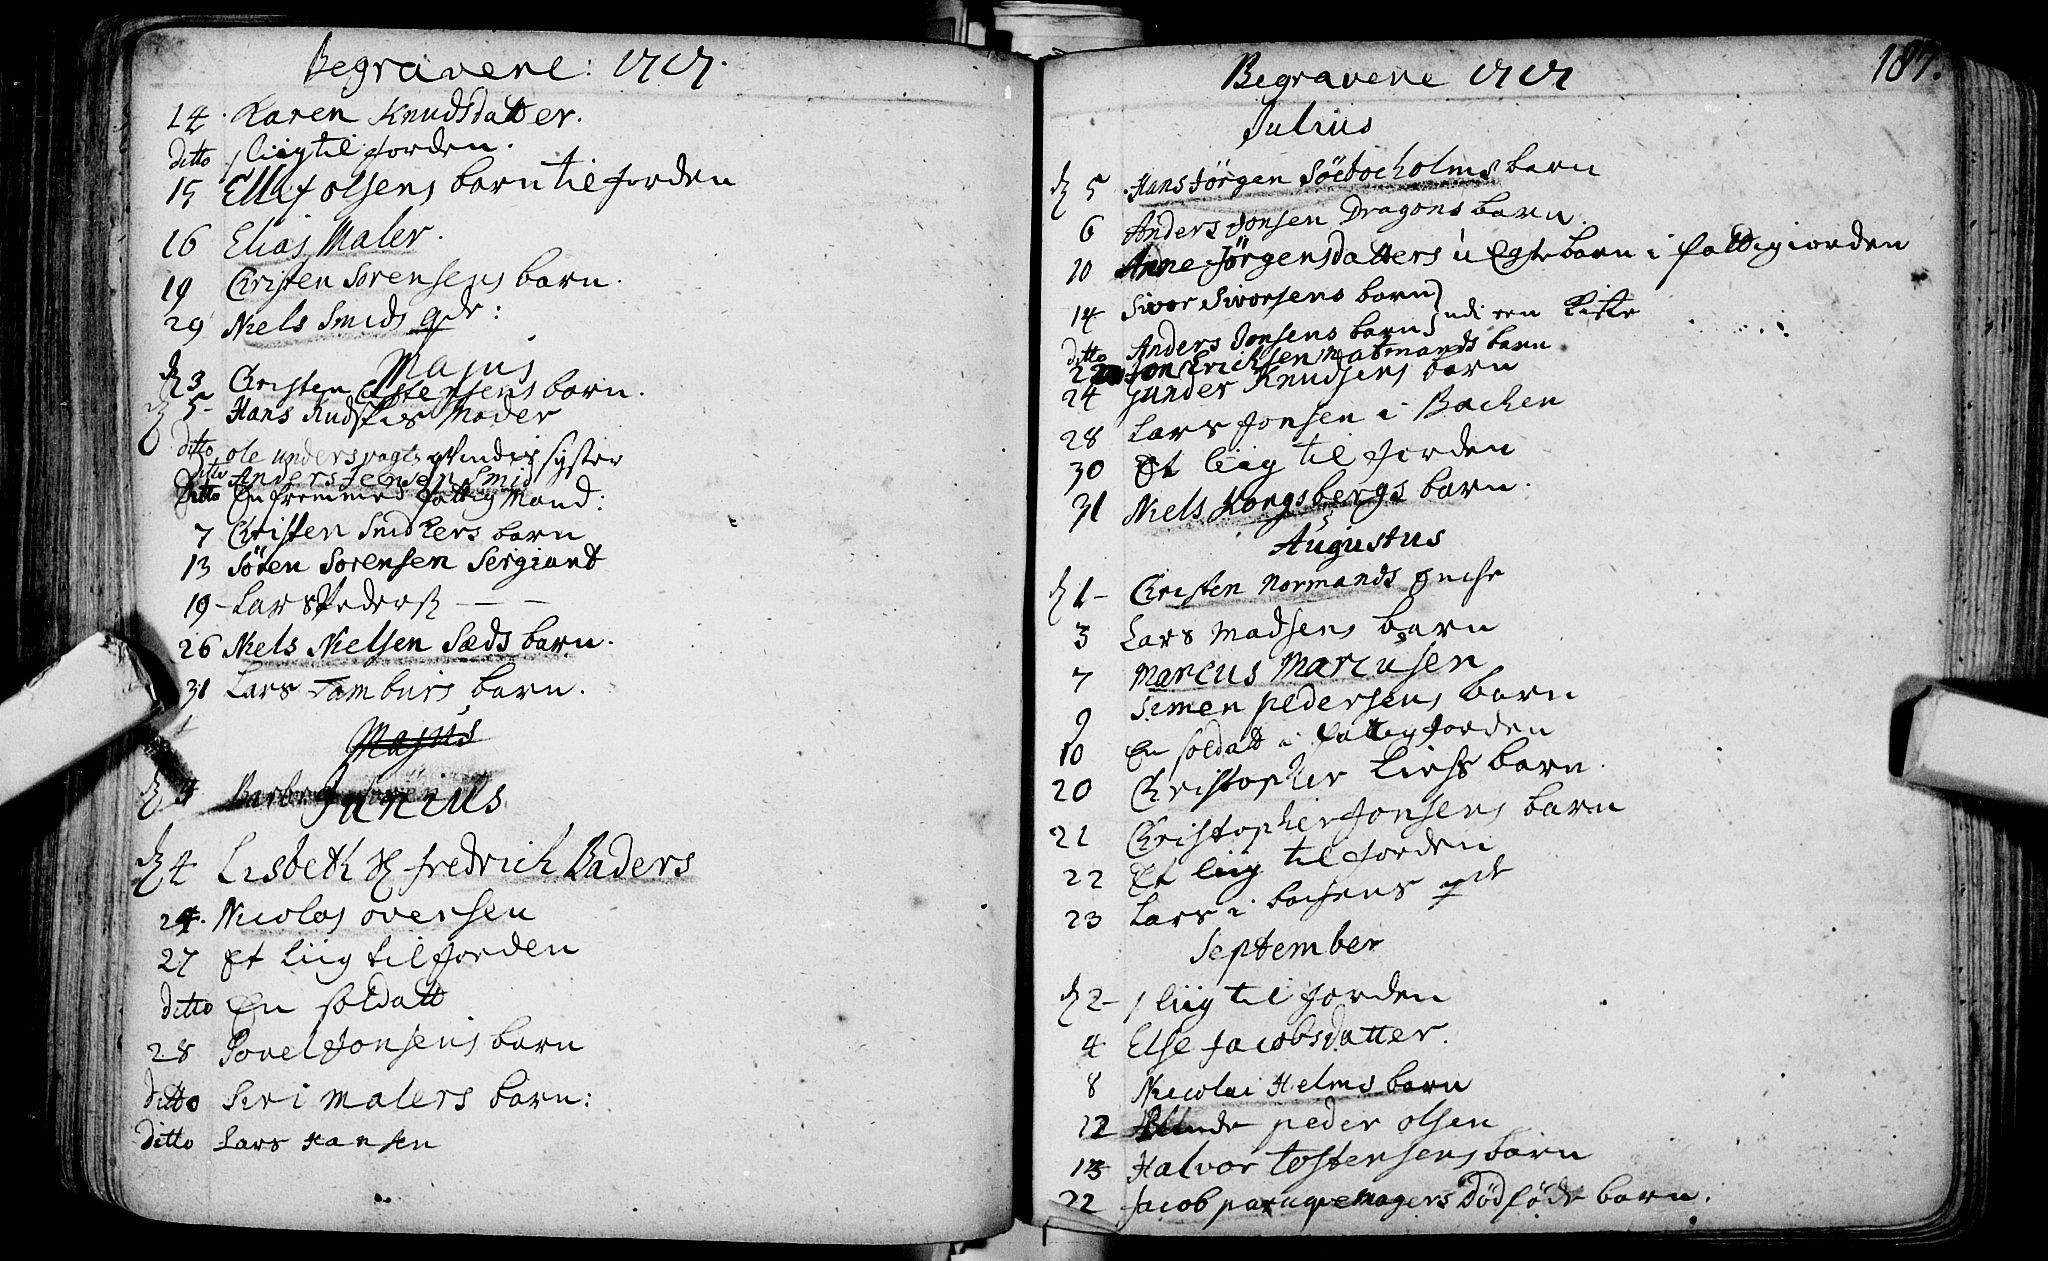 Begravene: 1717.
14. Karen Knudsdatter.
ditto 1 liig til Jorden.
15 Ellef olsens barn til Jorden
16 Elias Maler.
19 Christen Sorensens barn.
29 Niels Smids qde:
Majus
d 3 Christen Estensens barn.
d 5 - Hans Moder
ditto ole qvindis syster
ditto Anders Jensen Smid
Ditto En fremmed fattig Mand:
7 Christen Snidkers barn
13 Sören Sorensen Sergiant
19 - Lars Pederß — —
26 Niels Nielsen Sæds barn.
31 Lars Tamburs barn.
Majus
d 3 Barbra
Junius
d 4 Lisbeth Fredrich Baders
24. Nicolas oversen
27 Et liig til Jorden
ditto En soldatt
28 Povel Jonsens barn
ditto Siri Malers barn:
ditto Lars Hansen
Begravene 1717
187.
Julius
d 5 Hans Jörgen barn
6 Anders Jonsen Dragons barn.
10 Anne Jörgensdatters u Egte barn i fattigiorden
14 Siver Siversens barn } udi een Kiste
ditto Anders Jonsens barn
22 Jon Erichsen barn
24 Gunder Knudsens barn
28 Lars Jonsen i Bachen
30 Et liig til Jorden
31 Niels Kongsbergs barn.
Augustus
d 1 - Christen Normands Enche
3 Lars Madsens barn
7 Marcus Marcusen
9 Simen pedersens barn
10 En soldat i fattigJorden
20 Christopher barn.
21 Christopher Jonsens barn
22 Et liig til Jorden
23 Lars i qde
September
d 2 - 1 liig til Jorden
4 Else Jacobsdatter.
8 Nicolai Helms barn
12 Blinde peder olsen
13 Halvor Tostensens barn
22 Jacob Dödföde barn.